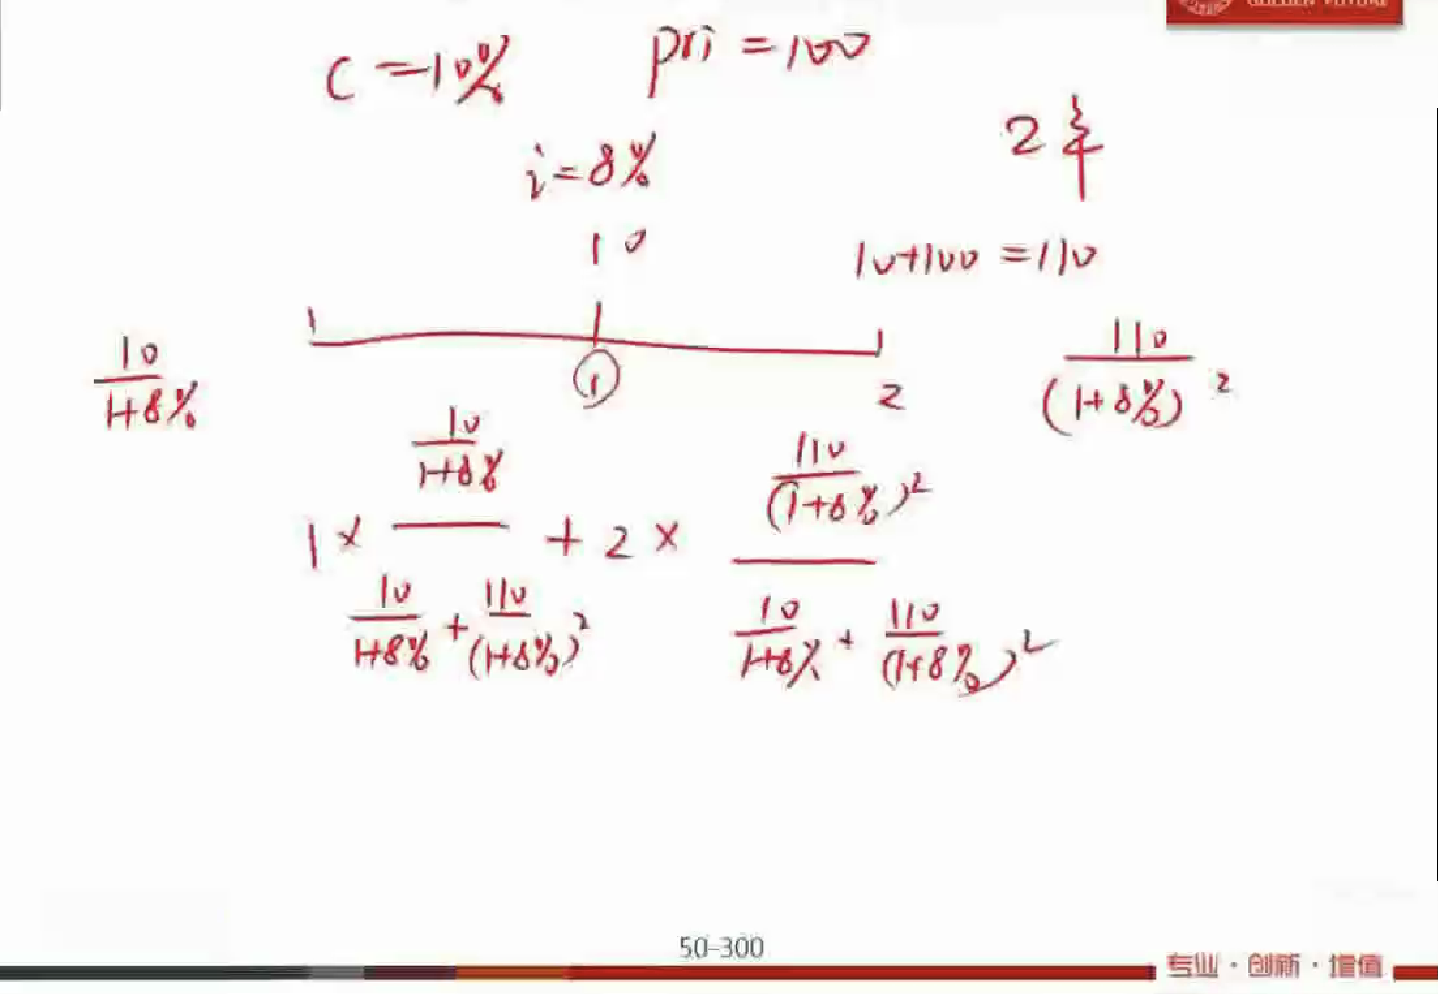 C=10% pri=100
2年
i=8%
10
10+100=110
10/(1+8%)
① 2
110/(1+8%)^2
1 × (10/(1+8%))/(10/(1+8%) + 110/(1+8%)^2) + 2 × (110/(1+8%)^2)/(10/(1+8%) + 110/(1+8%)^2)
50-300
专业·创新·增值